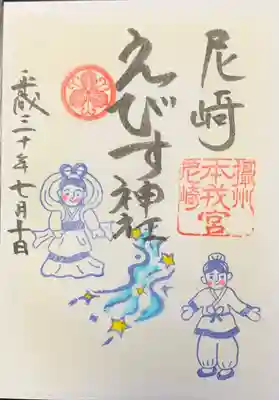 尼崎
えびす神社
平成三十年七月十日
摂州
本戎宮
尼崎